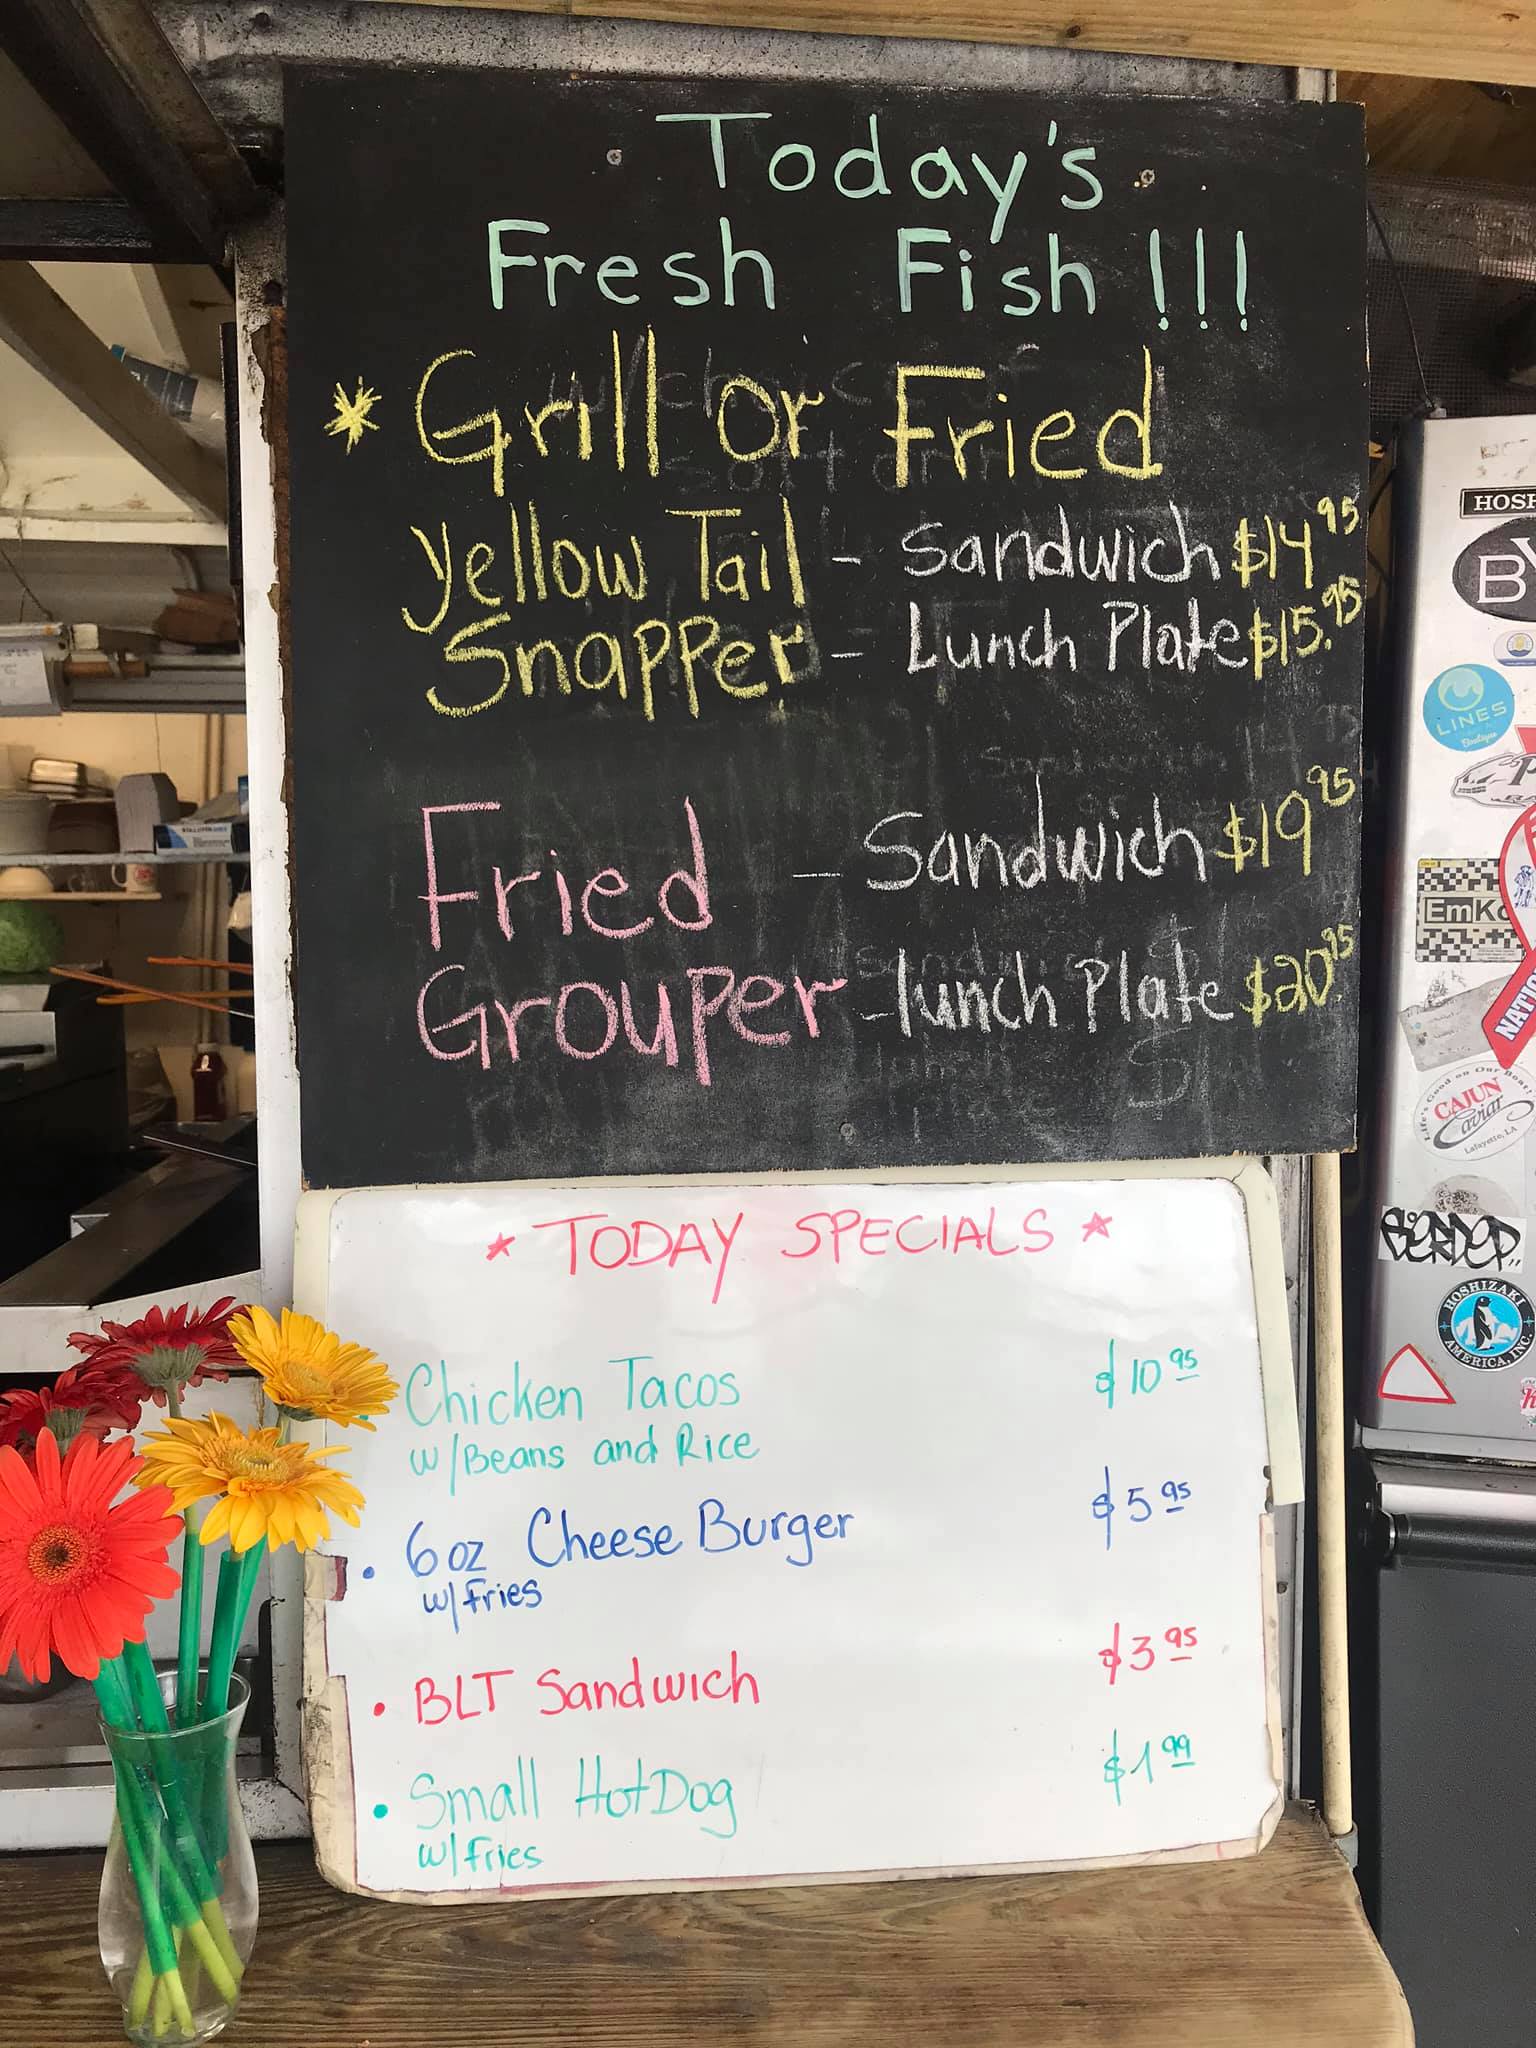 Today's
Fresh Fish!!!
* Grill or Fried
Yellow Tail - Sandwich $14 95
Snapper - Lunch Plate $15.95
Fried - Sandwich $19 95
Grouper - lunch Plate $20.95
* TODAY SPECIALS *
Chicken Tacos $10 95
w/Beans and Rice
• 6oz Cheese Burger $5 95
w/Fries
• BLT Sandwich $3 95
• Small HotDog $1 99
w/Fries
LINES
Boutique
EmKo
Life's Good on Our Boat!
CAJUN
Caviar
Lafayette, LA
HOSHIZAKI
AMERICA, INC.